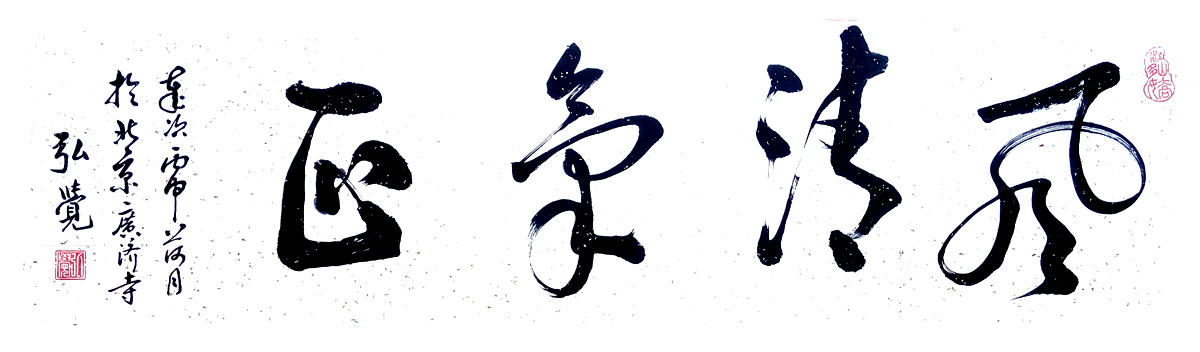 風清氣正
歲次丙申荷月
於北京廣濟寺
弘覺